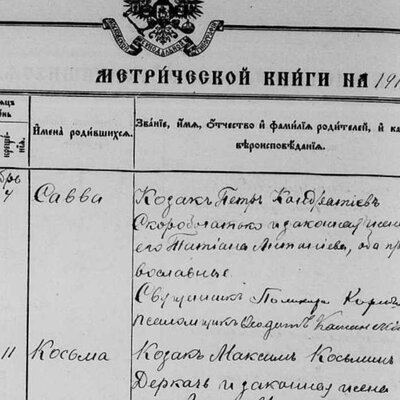 МЕТРИ́ЧЕСКОЙ КНИ́ГИ НА 191
яцъ
нь
креще-
нія.
И҆мена̀ роди́вшихся.
Зва́ніе, и҆́мя, ѻ҆́тчество и҆ фами́лїя роди́телей, и҆ ка
вѣроисповѣ́данія.
брь
4
Савва
Козакъ Петръ Кондратіевъ
Скоробогатько и законная жена
его Татіана Антоніева, оба пра
вославные.
Священникъ Поликарпъ
псаломщикъ Феодотъ
11
Косьма
Козакъ Максимъ Косьминъ
Деркачъ и законная жена